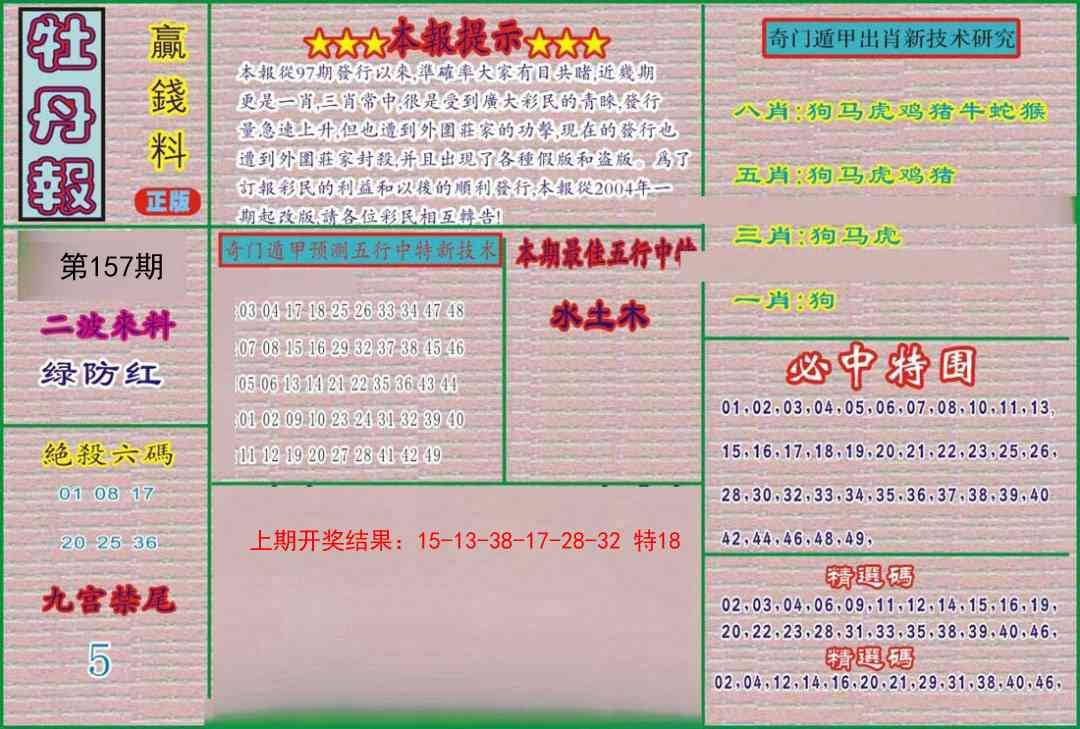 牡丹報
贏錢料
正版
★★★本報提示★★★
本報從97期發行以來,準確率大家有目共睹,近幾期
更是一肖,三肖常中,很是受到廣大彩民的青睞,發行
量急速上升,但也遭到外圍莊家的功擊,現在的發行也
遭到外圍莊家封殺,并且出現了各種假版和盗版。爲了
訂報彩民的利益和以後的順利發行,本報從2004年一
期起改版,請各位彩民相互轉告!
奇门遁甲出肖新技术研究
八肖:狗马虎鸡猪牛蛇猴
五肖:狗马虎鸡猪
三肖:狗马虎
一肖:狗
第157期
二波來料
绿防红
奇门遁甲预测五行中特新技术
:03 04 17 18 25 26 33 34 47 48
:07 08 15 16 29 32 37 38 45 46
:05 06 13 14 21 22 35 36 43 44
:01 02 09 10 23 24 31 32 39 40
:11 12 19 20 27 28 41 42 49
本期最佳五行中特
水土木
必中特围
01,02,03,04,05,06,07,08,10,11,13,
15,16,17,18,19,20,21,22,23,25,26,
28,30,32,33,34,35,36,37,38,39,40
42,44,46,48,49,
絕殺六碼
01 08 17
20 25 36
九宫禁尾
5
上期开奖结果：15-13-38-17-28-32 特18
精選碼
02,03,04,06,09,11,12,14,15,16,19,
20,22,23,28,31,33,35,38,39,40,46,
精選碼
02,04,12,14,16,20,21,29,31,38,40,46,